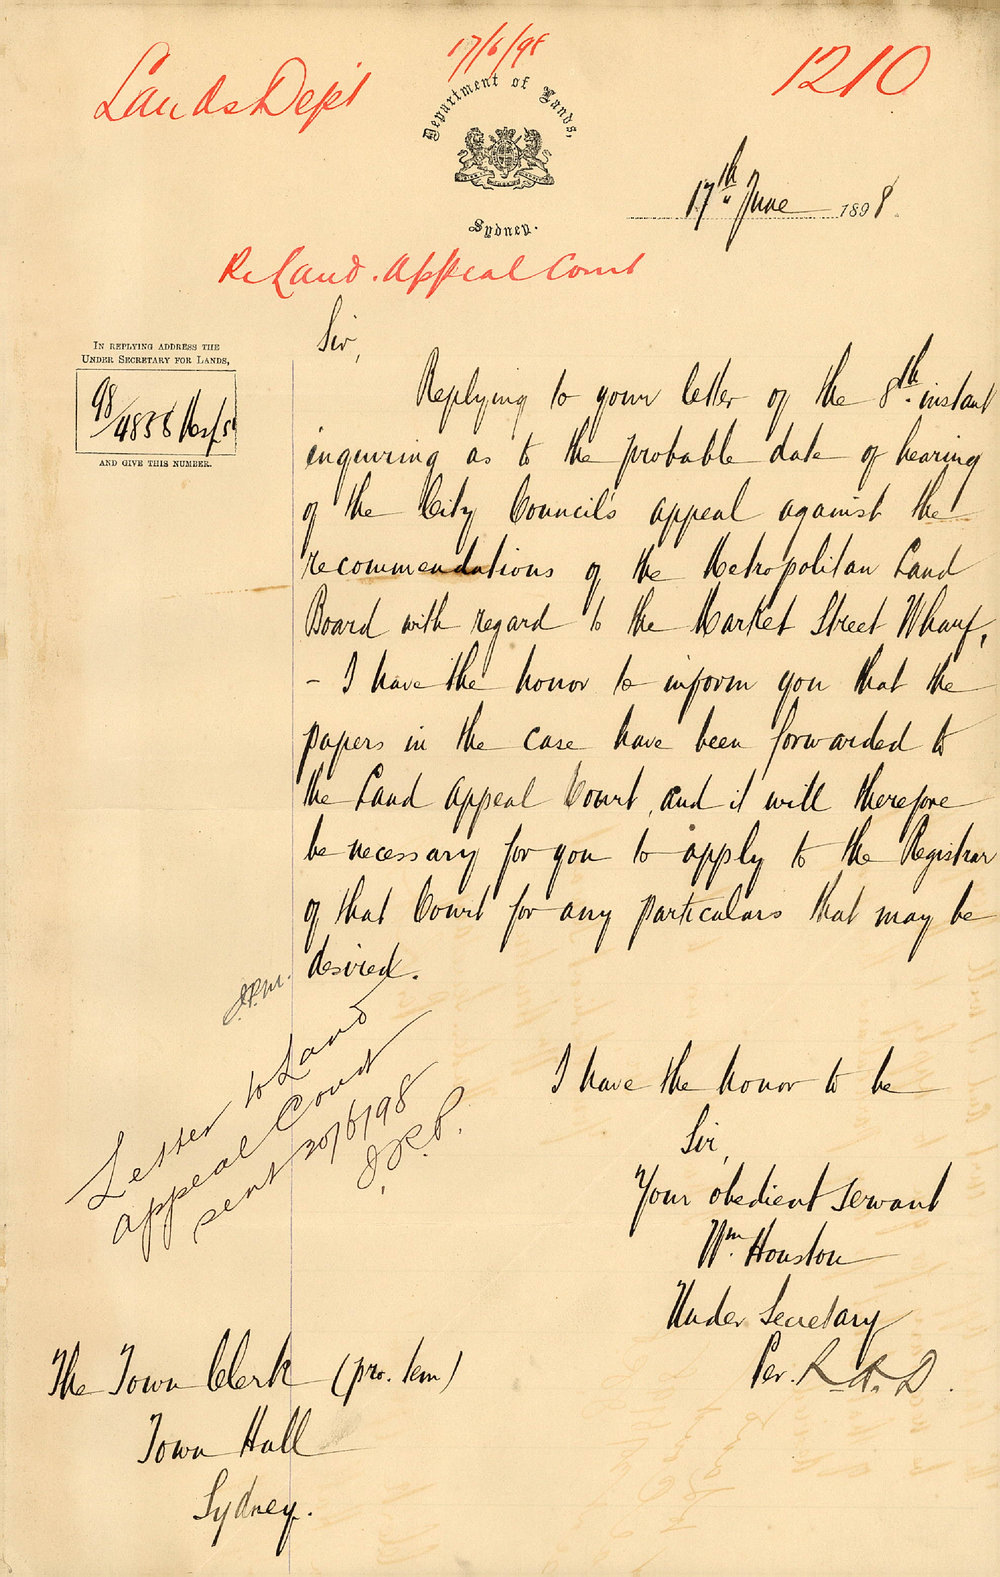 17/6/98
Lands Dept
1210
Department of Lands,
Sydney.
17th June 1898.
Re Land Appeal Court
Sir,
IN REPLYING ADDRESS THE
UNDER SECRETARY FOR LANDS,
98/4838
AND GIVE THIS NUMBER.
Replying to your letter of the 8th instant
inquiring as to the probable date of hearing
of the City Council's appeal against the
recommendations of the Metropolitan Land
Board with regard to the Market Street Wharf,
- I have the honor to inform you that the
papers in the case have been forwarded to
the Land Appeal Court, and it will therefore
be necessary for you to apply to the Registrar
of that Court for any particulars that may be
desired.
Letter to Land
Appeal Court
sent 20/6/98
I have the honor to be
Sir,
Your obedient servant
Wm. Houston
Under Secretary
Per.
The Town Clerk (pro. tem)
Town Hall
Sydney.